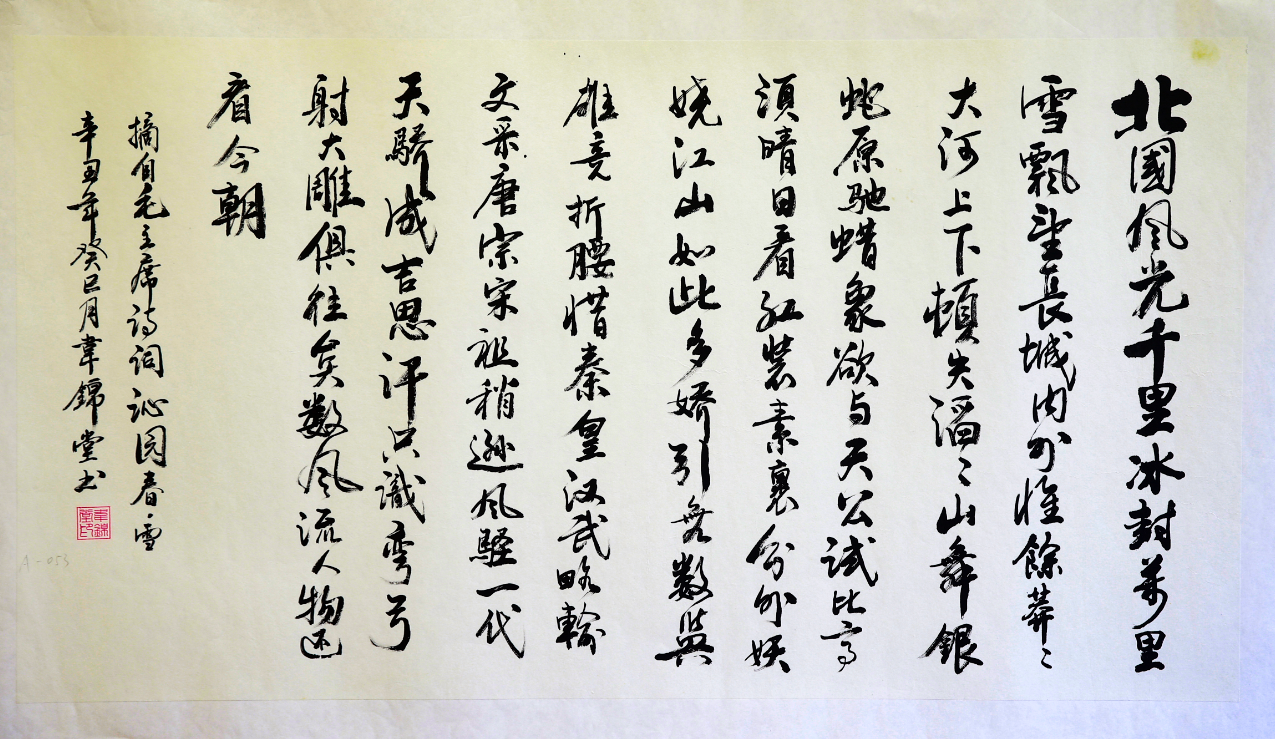 北國风光千里冰封萬里
雪飄望長城内外惟餘莽々
大河上下頓失滔々山舞銀
蛇原驰蜡象欲与天公試比高
須晴日看红装素裹分外妖
娆江山如此多嬌引無数
雄竞折腰惜秦皇汉武略輸
文采唐宗宋祖稍逊风骚一代
天驕成吉思汗只識弯弓
射大雕俱往矣数风流人物还
看今朝
摘自毛主席诗词沁园春·雪
辛丑年癸巳月韋錦堂书
韋錦堂印
A-053